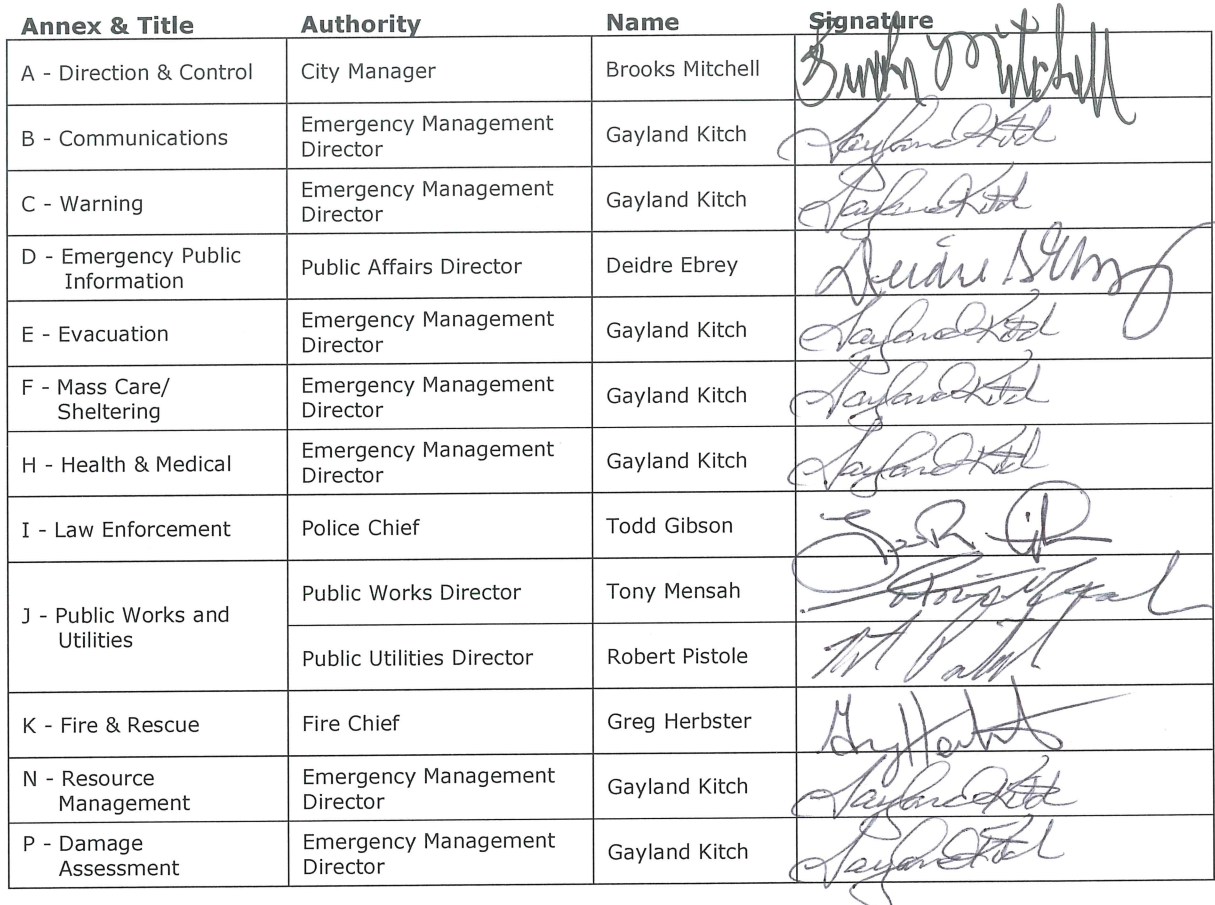 Annex & Title Authority Name Signature
A - Direction & Control City Manager Brooks Mitchell Brooks Mitchell
B - Communications Emergency Management Director Gayland Kitch Gayland Kitch
C - Warning Emergency Management Director Gayland Kitch Gayland Kitch
D - Emergency Public Information Public Affairs Director Deidre Ebrey Deidre D Ebrey
E - Evacuation Emergency Management Director Gayland Kitch Gayland Kitch
F - Mass Care/ Sheltering Emergency Management Director Gayland Kitch Gayland Kitch
H - Health & Medical Emergency Management Director Gayland Kitch Gayland Kitch
I - Law Enforcement Police Chief Todd Gibson
J - Public Works and Utilities Public Works Director Tony Mensah
Public Utilities Director Robert Pistole
K - Fire & Rescue Fire Chief Greg Herbster Greg Herbster
N - Resource Management Emergency Management Director Gayland Kitch Gayland Kitch
P - Damage Assessment Emergency Management Director Gayland Kitch Gayland Kitch